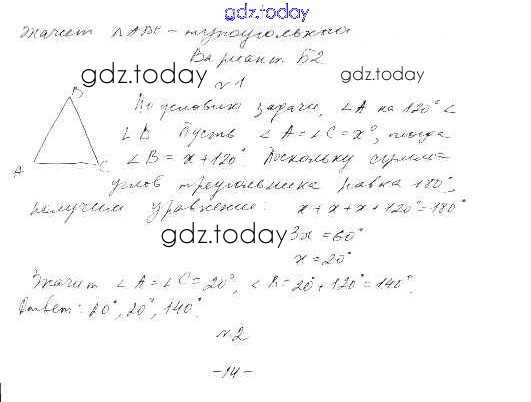 gdz.today
Значит △ABC – тупоугольный
Вариант Б2
gdz.today gdz.today
№1
По условию задачи, ∠A на 120° <
∠B. Пусть ∠A = ∠C = x°, тогда
∠B = x + 120°. Поскольку сумма
углов треугольника равна 180°,
получим уравнение: x + x + x + 120° = 180°
gdz.today 3x = 60°
x = 20°
Значит ∠A = ∠C = 20°, ∠B = 20° + 120° = 140°.
Ответ: 20°, 20°, 140°.
№2
-14-
B
A
C